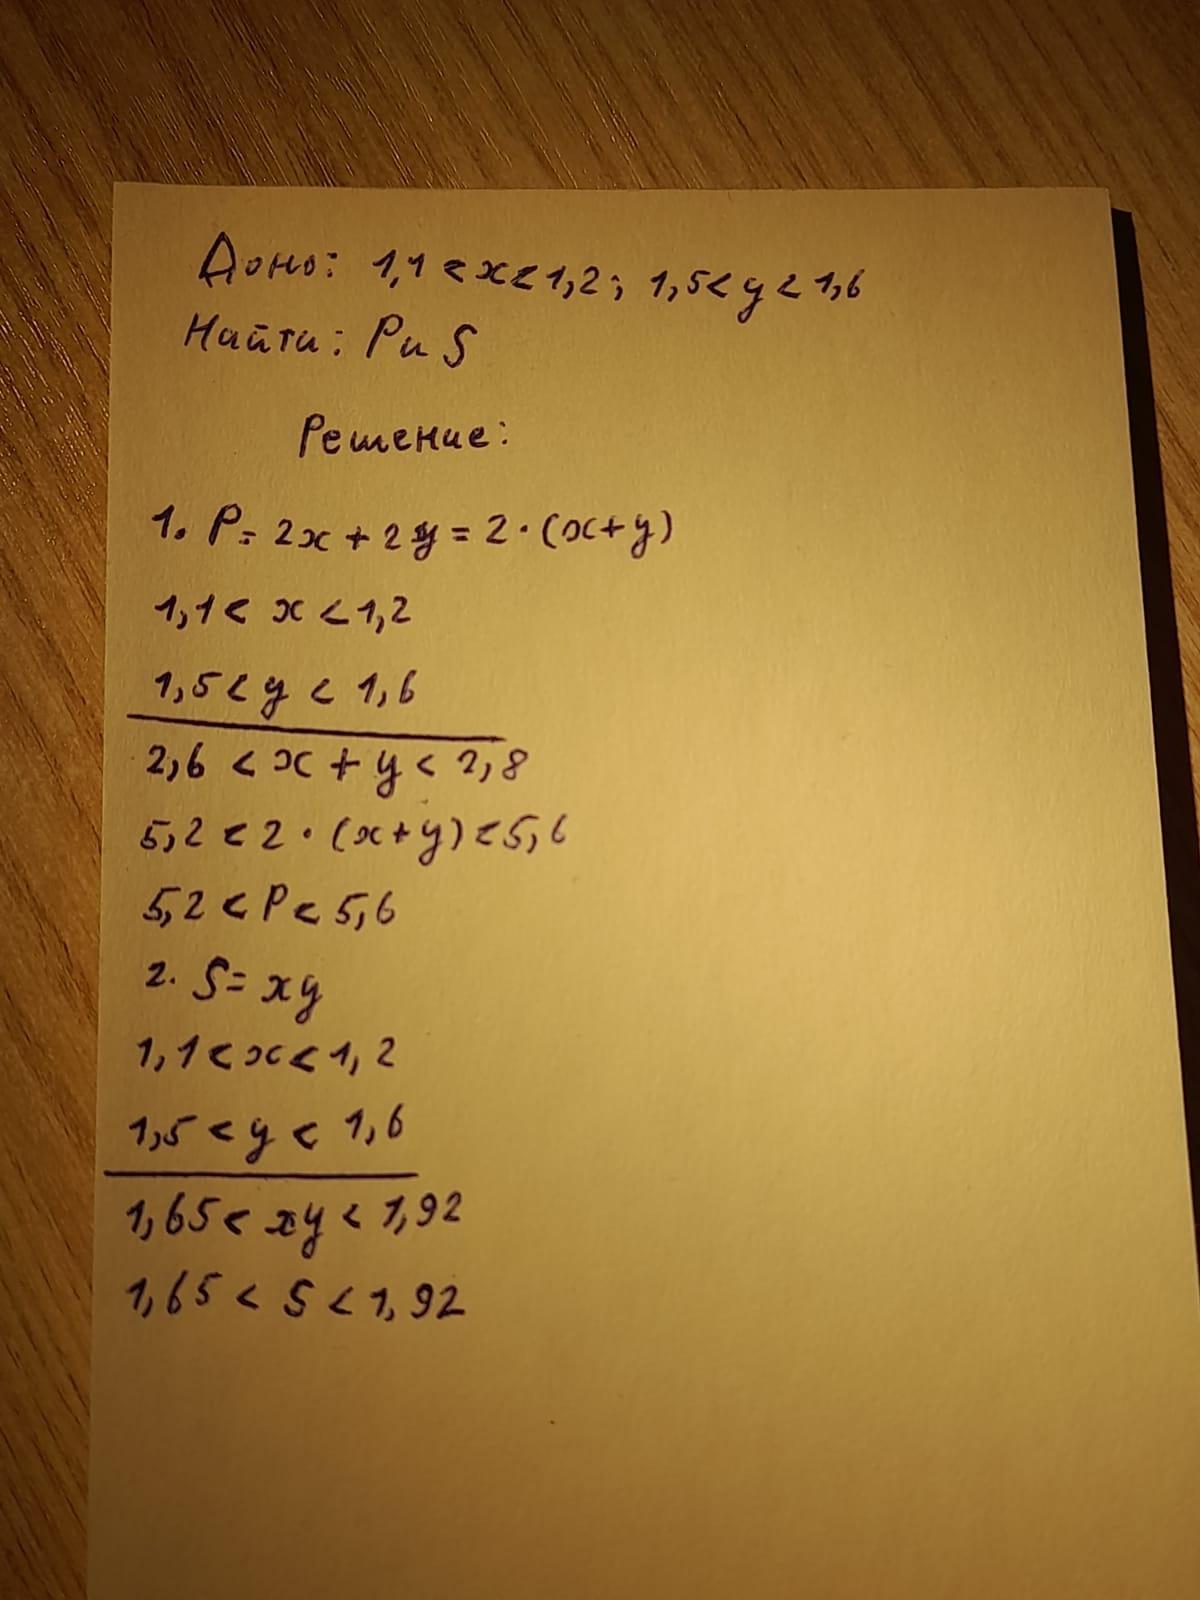 Дано: 1,1 < x < 1,2; 1,5 < y < 1,6
Найти: P и S
Решение:
1. P = 2x + 2y = 2 · (x+y)
1,1 < x < 1,2
1,5 < y < 1,6
2,6 < x + y < 2,8
5,2 < 2 · (x+y) < 5,6
5,2 < P < 5,6
2. S = xy
1,1 < x < 1,2
1,5 < y < 1,6
1,65 < xy < 1,92
1,65 < S < 1,92